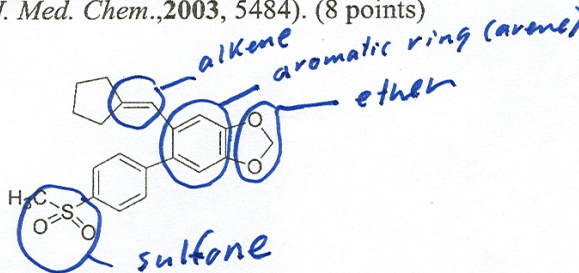 J. Med. Chem.,2003, 5484). (8 points)
alkene
aromatic ring (arene)
ether
O
O
H3C
S
O
O
sulfone